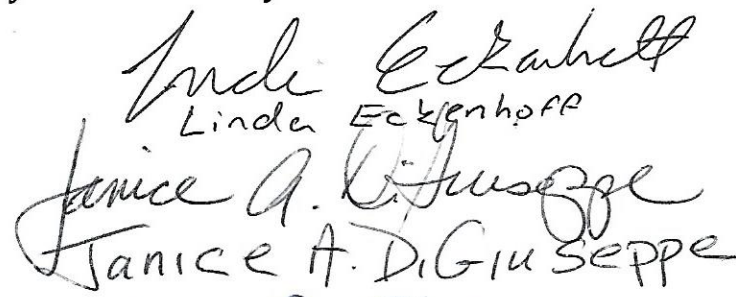 Linda Eckenhoff
Linda Eckenhoff
Janice A. DiGiuseppe
Janice A. DiGiuseppe